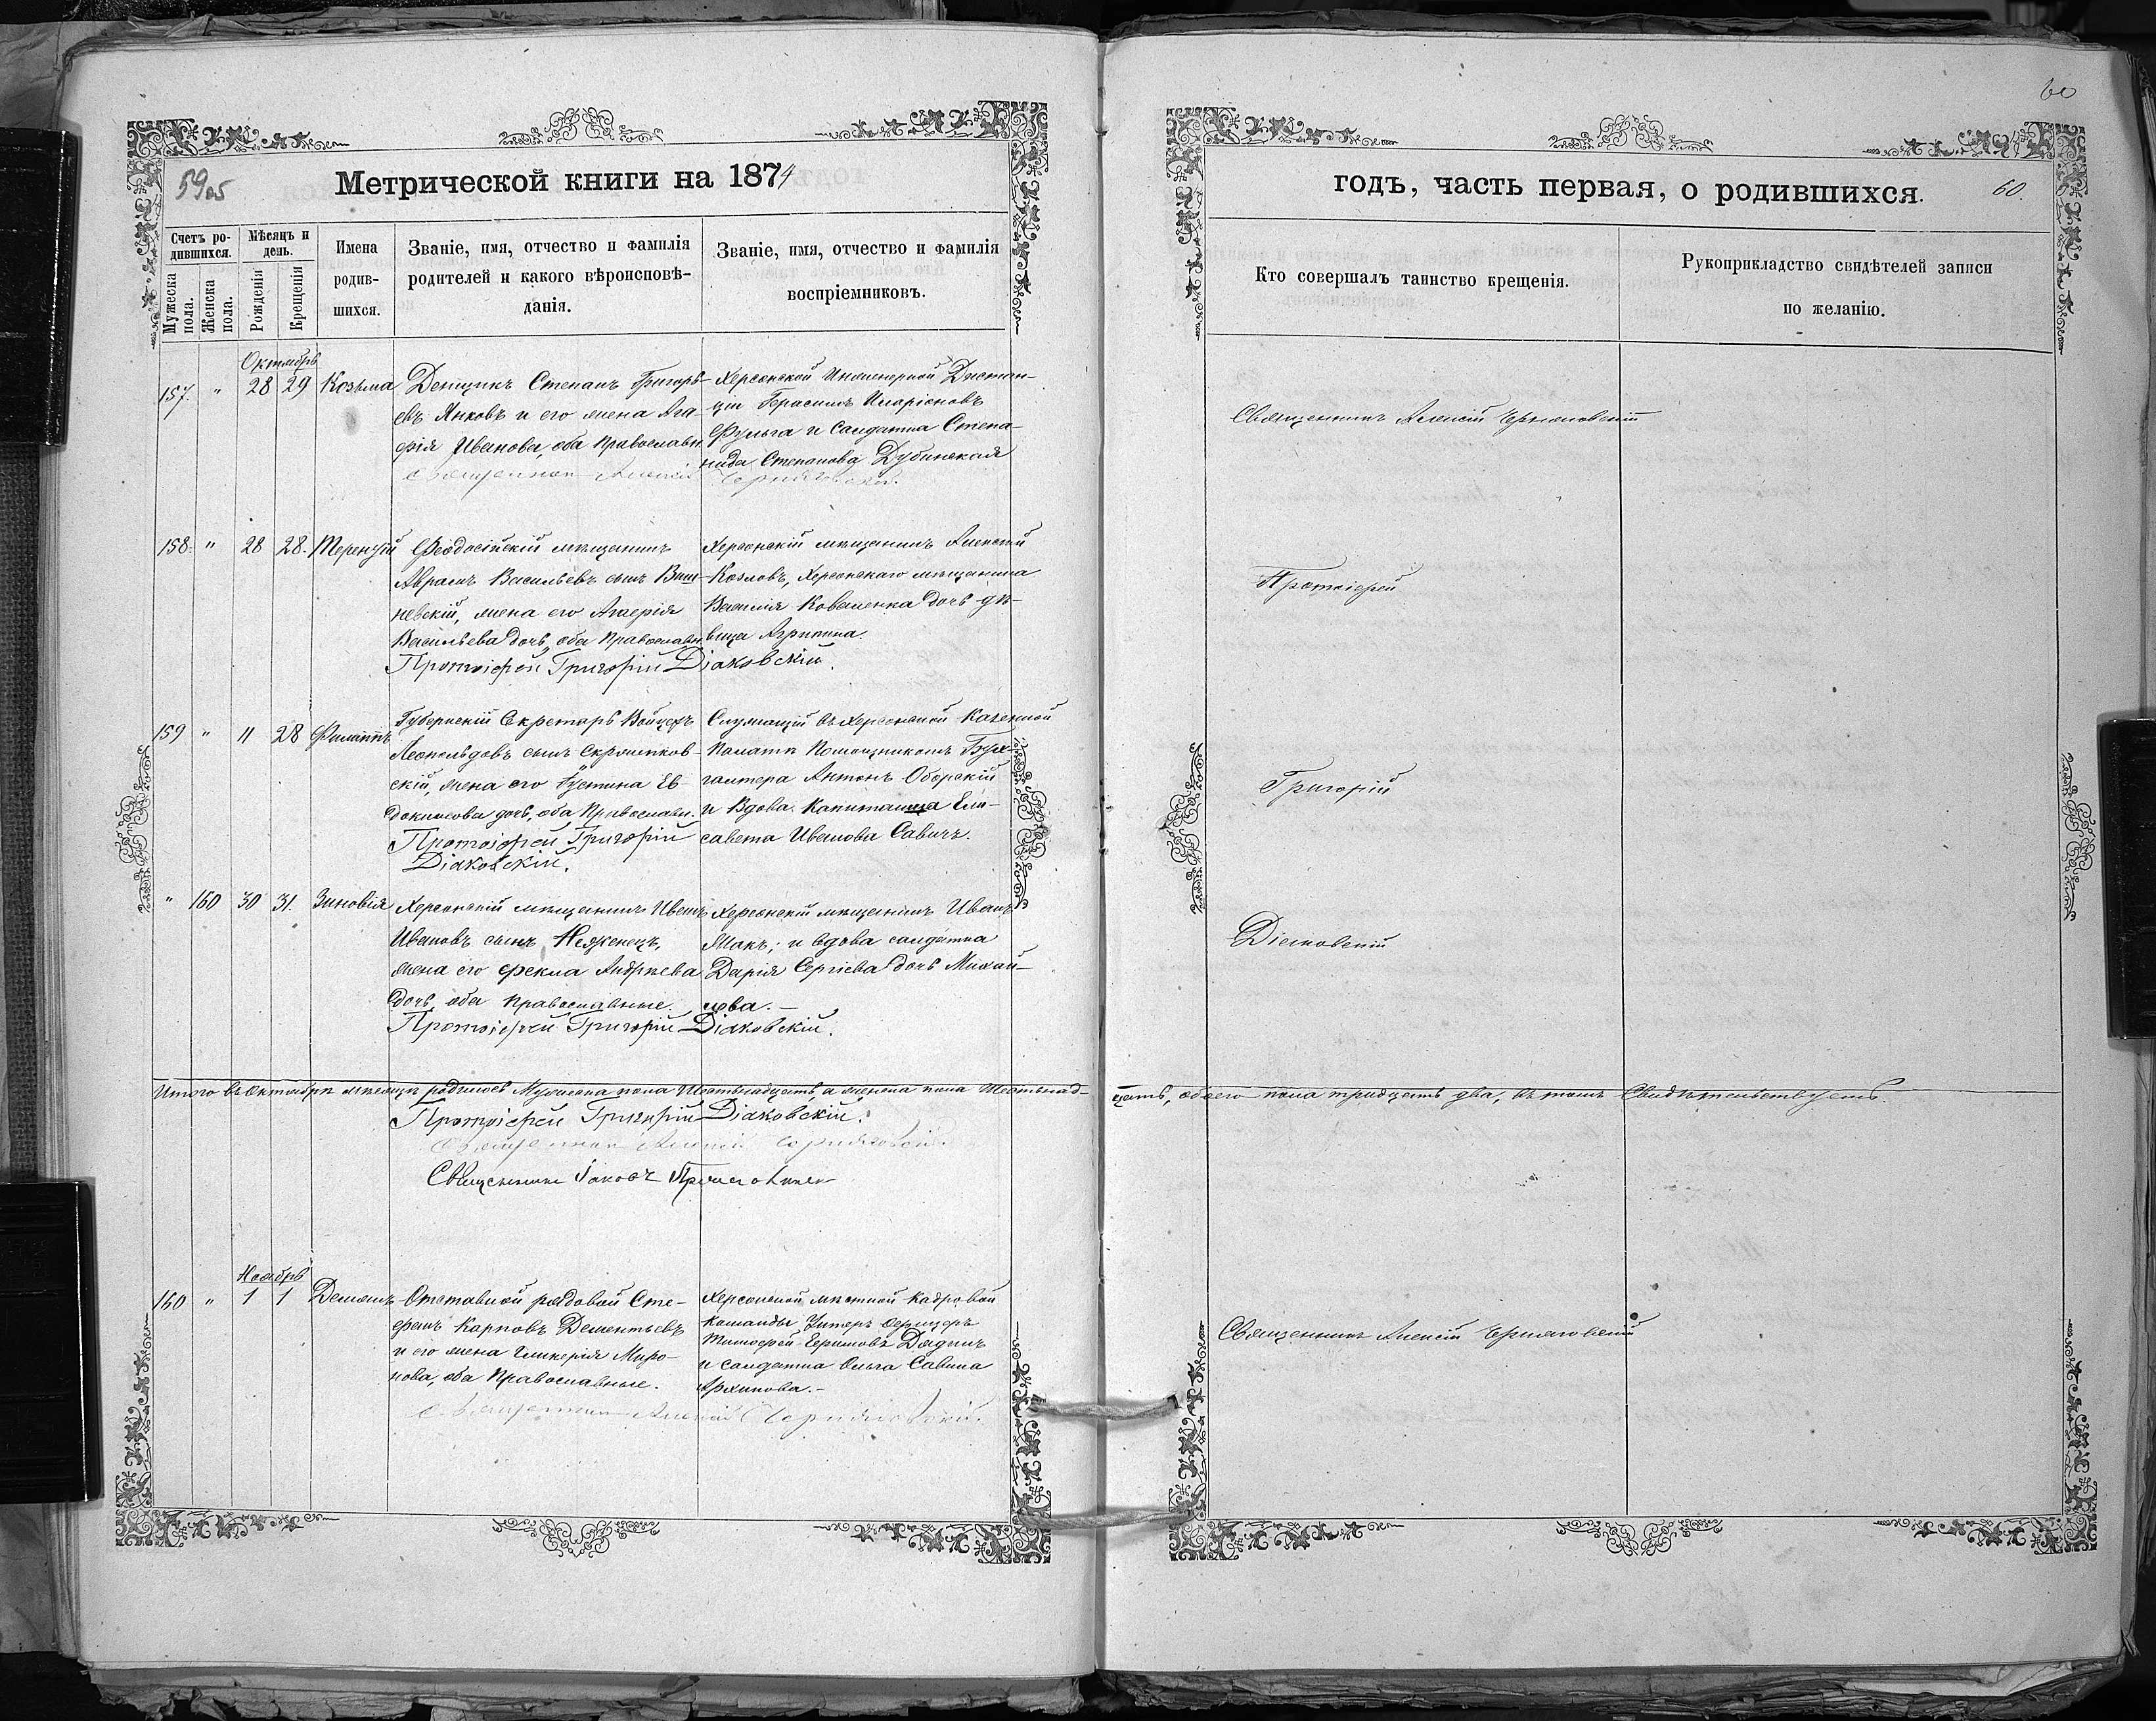 59об
Метрической книги на 1874
Счетъ ро-
дившихся.
Мѣсяцъ и
день.
Мужеска
пола.
Женска
пола.
Рожденія
Крещенія
Имена
родив-
шихся.
Званіе, имя, отчество и фамилія
родителей и какого вѣроисповѣ-
данія.
Званіе, имя, отчество и фамилія
воспріемниковъ.
Октябрь
157. " 28 29 Козьма
Денщикъ Степанъ Григорь-
евъ Янковъ и его жена Ага
фія Иванова, оба Православн
Священник Алексій Черняховскій.
Херсонской Инженерной Дистан-
ціи Герасимъ Иларіоновъ
и солдатка Степа-
нида Степанова Дубинская
158. " 28 28. Терентій
Феодосійскій мѣщанинъ
Авраамъ Васильевъ сынъ Виш-
невскій, жена его
Васильева дочь, оба Православн
Протоіерей Григорій Діаковскій.
Херсонскій мѣщанинъ Алексѣй
Козловъ, Херсонскаго мѣщанина
Василія Коваленка дочь дѣ-
вица Агрипина.
159 " 11 28 Филиппъ
Губернскій Секретарь Войцехъ
Леопольдовъ сынъ
скій, жена его Іустина Ев-
докимова дочь, оба Православн.
Протоіерей Григорій
Діаковскій.
Служащій въ Херсонской Казенной
Палатѣ Помощникомъ Бух-
галтера Антонъ Оборскій
и Вдова Капитанша Ели-
савета Иванова Савичъ.
" 160 30 31. Зиновія
Херсонскій мѣщанинъ Иванъ
Ивановъ сынъ Неженецъ,
жена его Фекла Андрѣева
дочь, оба Православные.
Протоіерей Григорій Діаковскій.
Херсонскій мѣщанинъ Иванъ
Макъ; и вдова солдатка
Дарія Сергіева дочь Михай-
лова.–
Итого въ Октябрѣ мѣсяцѣ родилось Мужеска пола Шестьнадцать, а женска пола Шестьнад-
Протоіерей Григорій Діаковскій.
Священник Алексій Черняховскій.
Священникъ Іаковъ
Ноябрь
160 " 1 1 Демьянъ
Отставной рядовой Сте-
фанъ Карповъ Дементьевъ
и его жена Гликерія Миро-
нова, оба Православные.
Священник Алексій Черняховскій.
Херсонской мѣстной кадровой
команды Унтеръ Офицеръ
Тимофей Ефимовъ
и солдатка Ольга Савина
Архипова.–
60
годъ, часть первая, о родившихся.
60.
Кто совершалъ таинство крещенія.
Рукоприкладство свидѣтелей записи
по желанію.
Священникъ Алексій Черняховскій
Протоіерей
Григорій
Діаковскій
цать, обоего пола тридцать два, въ томъ Свидѣтельствуемъ.
Священникъ Алексій Черняховскій